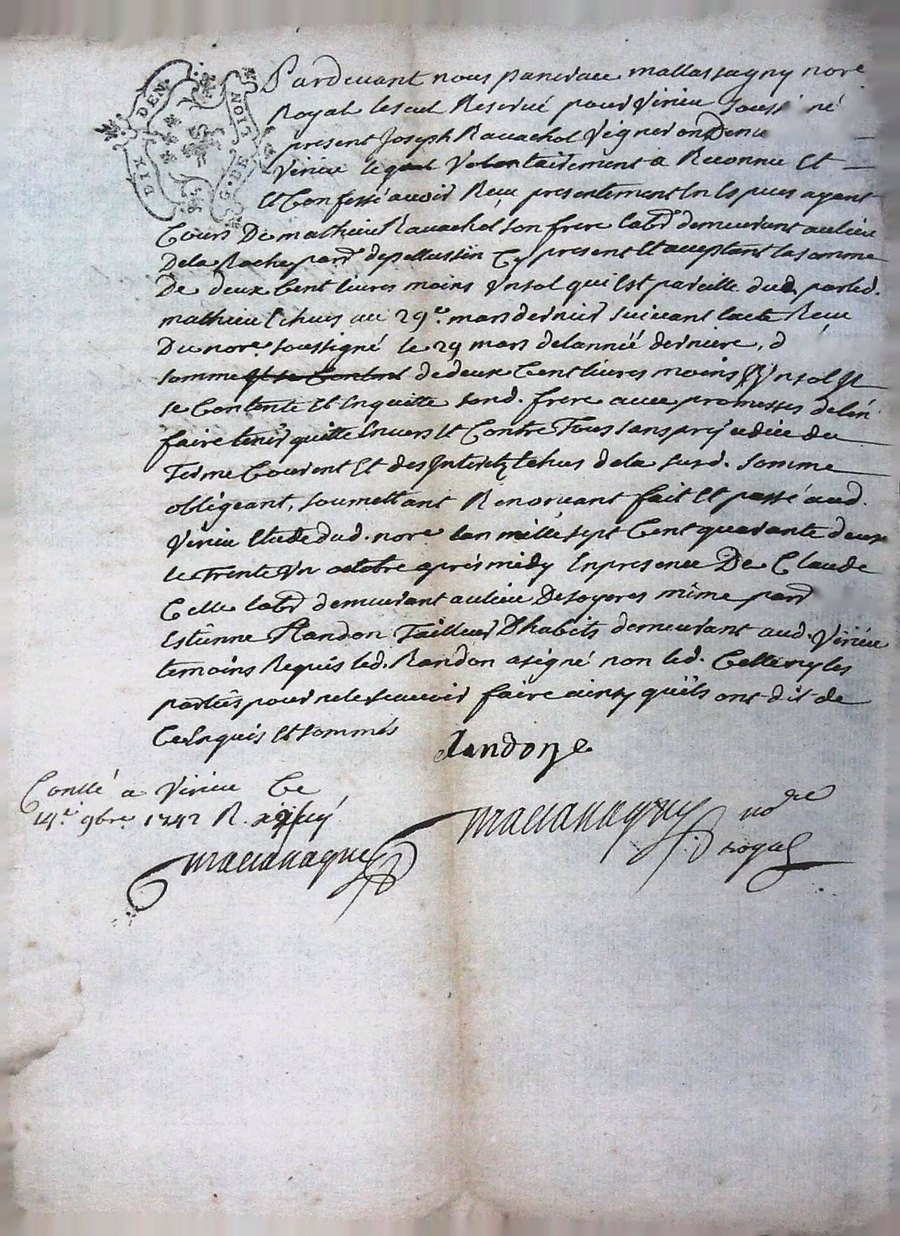 DIX DEN. G. DE LION
Pardevant nous pancrace mallassagny nore
Royal le seul Reservé pour Virieu soussi né
present Joseph Ravachol Vigneron De
Virieu lequel Volontairement a Reconnu Et
Et Confessé avoir Reçu presentement En Espices ayant
Cours De mathieu Ravachol son frere labr demeurant au lieu
De la Roche parr de pellussin Cy present Et acceptant la somme
De deux Cent livres moins Un sol qui Est pareille dud par led.
mathieu Echues au 29e mars dernier suivant lacte Reçu
Du nore soussigné le 29 mars de lannié derniere, d
somme de deux Cent livres moins Un sol Il
se Contente Et Enquitte sond. frere avec promesses de len
faire tenir quitte Envers Et Contre Tous sans prejudice du
Terme Courent Et des Interetz Echus de la susd. somme
obligeant, soumettant Renonçant fait Et passé aud.
Virieu Etude dud. nore lan mille sept Cent quarante deux
le Trente Un octobre après midy En presence De Claude
Celle labr demeurant au lieu De soyeres même parr
Estienne Randon Tailleur Dhabits demeurant aud. Virieu
temoins Requis led. Randon a signé non led. Celle ny les
parties pour ne le sçavoir faire ainsy quils ont dit de
Ce Enquis Et sommés
Randon
Conllé a Virieu Ce
14e 9bre 1742 R.